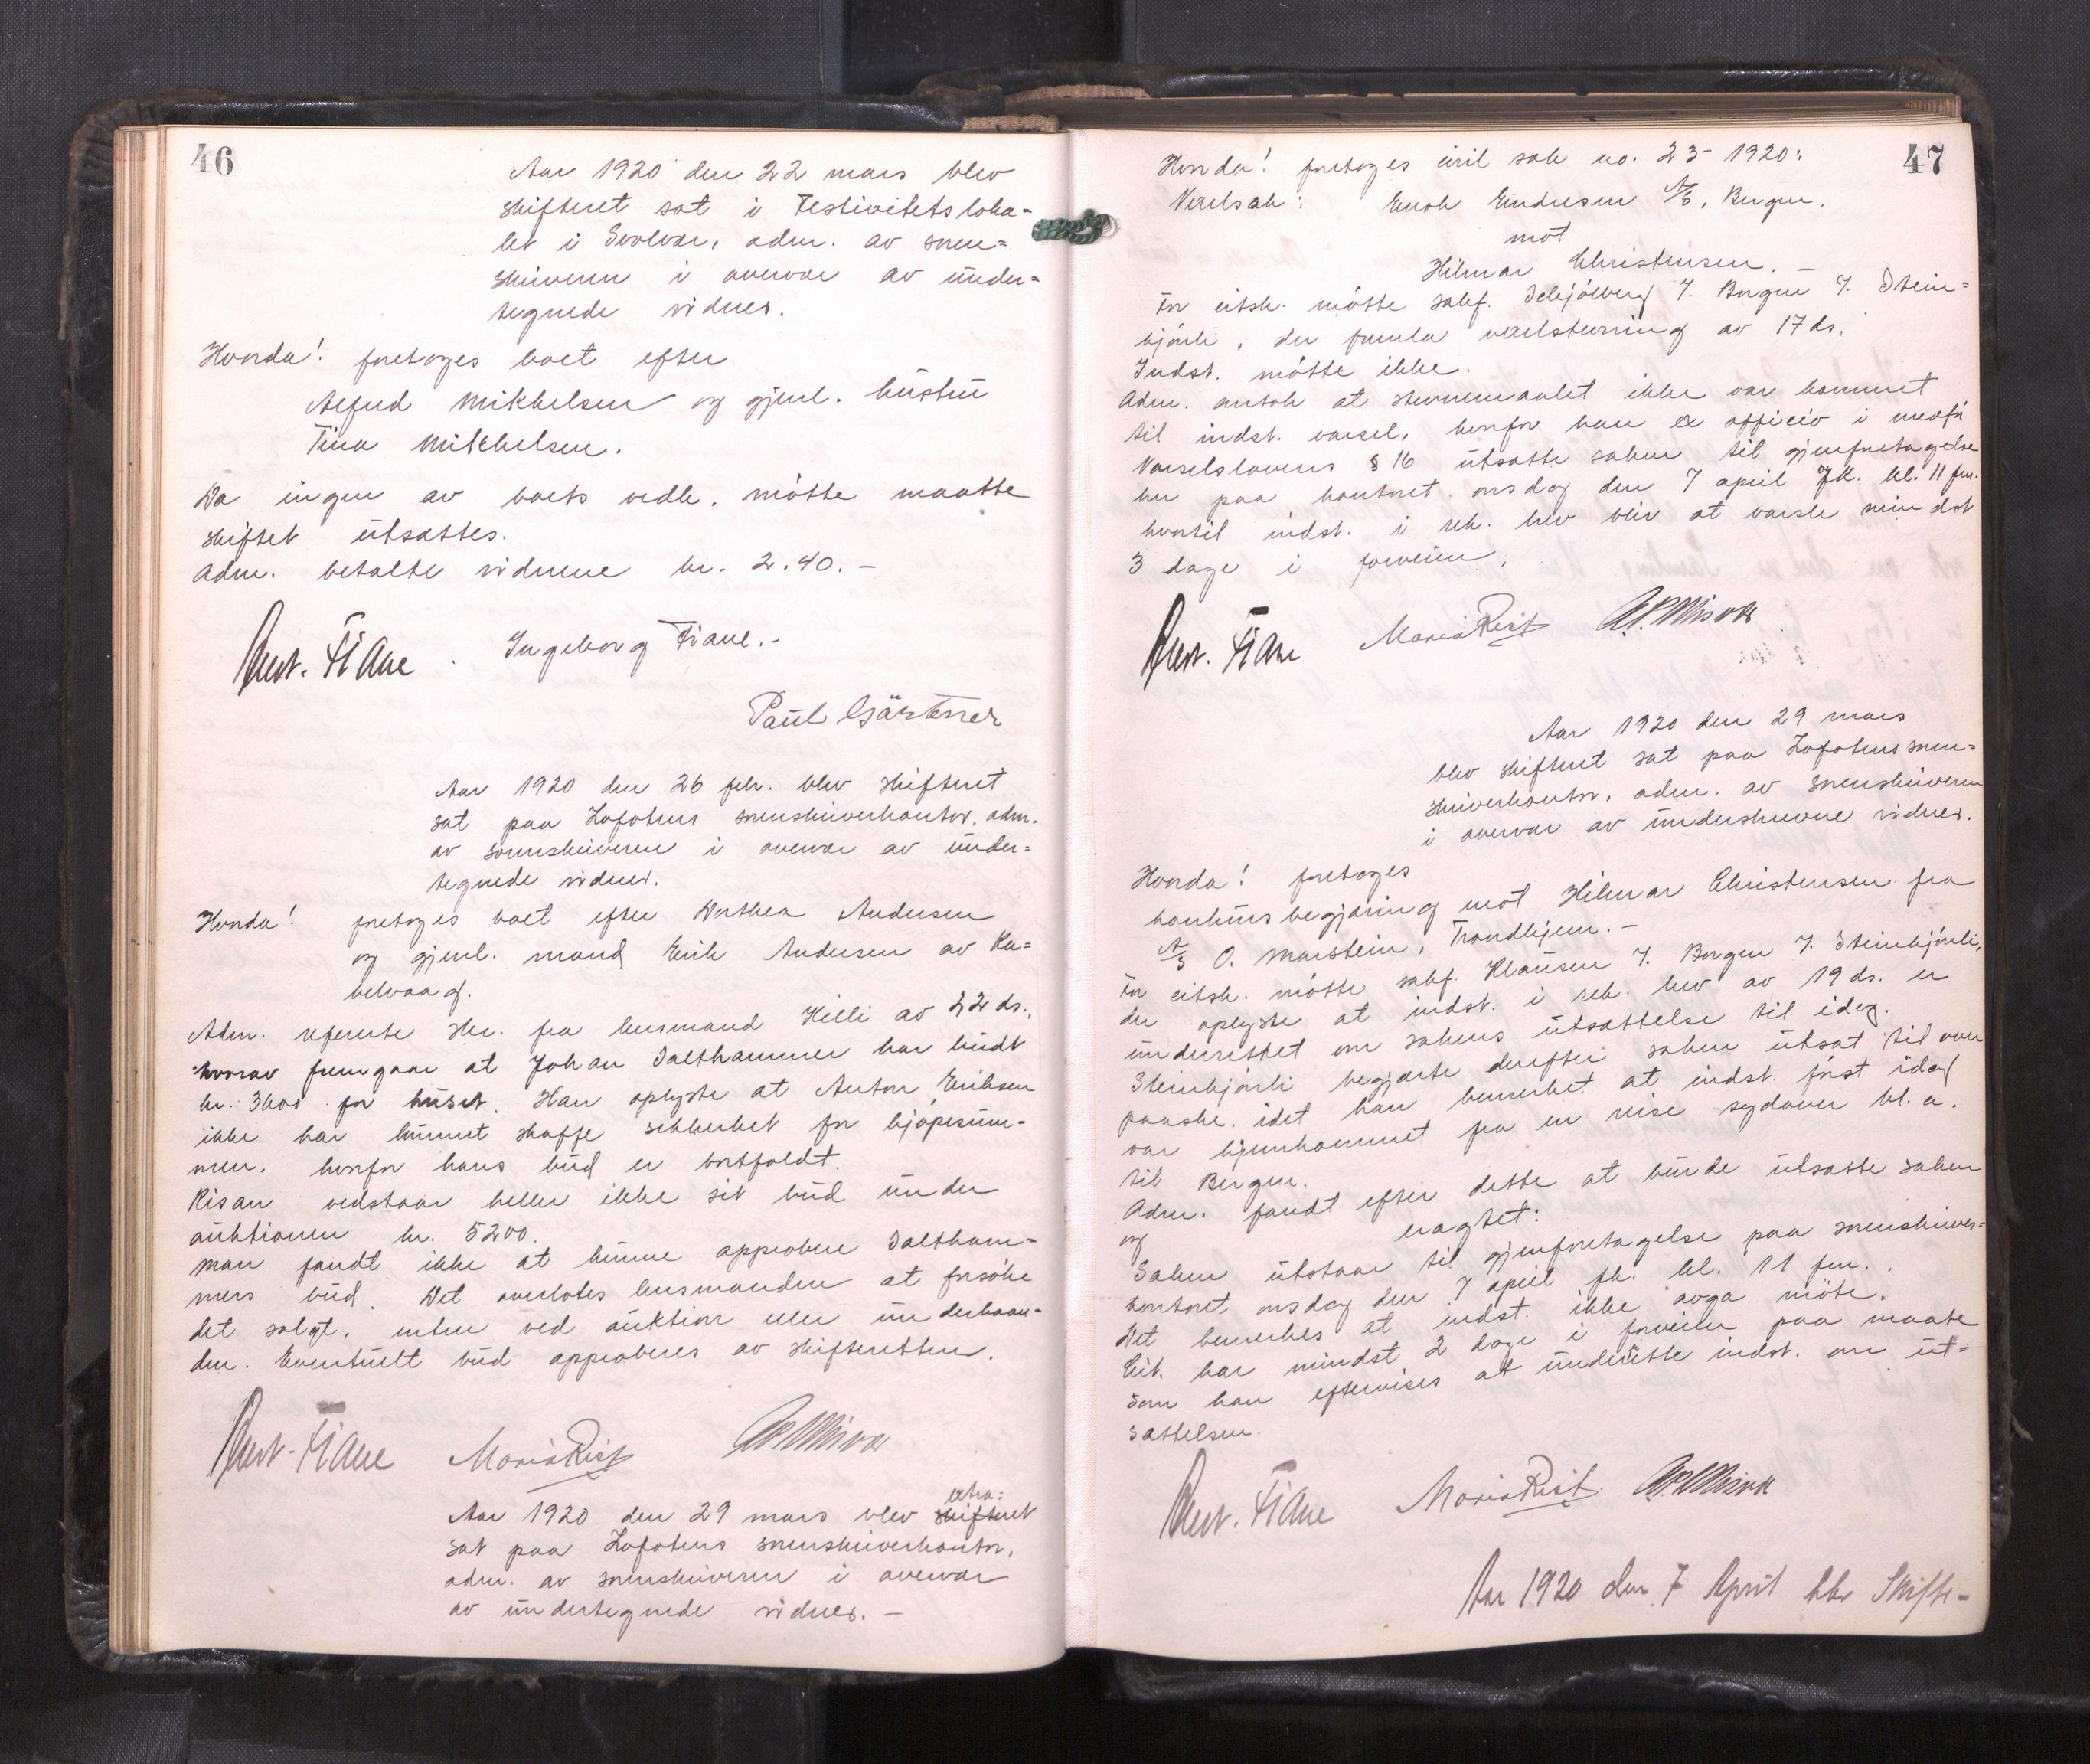 46
Aar 1920 den 22 mars blev
skifteret sat i Festivitetsloka-
let i Svolvær, adm. av soren-
skriveren i overvær av under-
tegnede vidner.
Hvorda! foretoges boet efter
Alfred Mikkelsen og gjenl. hustru
Tina Mikkelsen.
Da ingen av boets vedk. møtte maatte
skiftet utsattes.
Adm. betalte vidnene kr. 2.40. -
Fiane Ingeborg Fiane.-
Paul Gärtner
Aar 1920 den 26 febr. blev skifteret
sat paa Lofotens sorenskriverkontor, adm.
av sorenskriveren i overvær av under-
tegnede vidner.
Hvorda! foretoges boet efter Dorthea Andersen
og gjenl. mand Erik Andersen av Ka-
belvaag.
Adm. refererte skr. fra lensmand Killi av 22 ds.,
hvorav fremgaar at Johan Salthammer har budt
kr. 3600 for huset. Han oplyste at Anton Eriksen
ikke har kunnet skaffe sikkerhet for kjøpesum-
men, hvorfor hans bud er bortfaldt.
Risan vedstaar heller ikke sit bud under
auktionen kr. 5200.
Man fandt ikke at kunne approbere Saltham-
mers bud. Det overlotes lensmanden at forsøke
det solgt, enten ved auktion eller underhaan-
den. Eventuelt bud approberes av skifteretten.
Fiane Maria Rist
Aar 1920 den 29 mars blev skifteret extra-
sat paa Lofotens sorenskriverkontor,
adm. av sorenskriveren i overvær
av undertegnede vidner. -
47
Hvorda! foretoges civil sak no. 23- 1920:
Vexelsak: Enok Endresen A/S, Bergen.
mot
Hilmar Christensen. -
For citsk. møtte sakf. Schjølberg f. Borgen f. Stein-
kjønli, der fremla vexelstevning av 17 ds.
Indst. møtte ikke.
Adm. antok at stevnemaalet ikke var kommet
til indst. varsel, hvorfor han ex officio i medfør
Vexelslovens § 16 utsatte saken til gjenforetagelse
her paa kontoret onsdag den 7 april fk. kl. 11 fm.
hvortil indst. i rek. brev blir at varsle mindst
3 dage i forveien.
Fiane Maria Rist
Aar 1920 den 29 mars
blev skifteret sat paa Lofotens soren-
skriverkontor, adm. av sorenskriveren
i overvær av underskrevne vidner.
Hvorda! foretoges
konkursbegjæring mot Hilmar Christensen fra
A/S O. Marstein, Trondhjem. -
For citsk. møtte sakf. Klausen f. Borgen f. Steinkjønli,
der oplyste at indst. i rek. brev av 19 ds. er
underrettet om sakens utsættelse til idag.
Steinkjønli begjærte derefter saken utsat til over
paaske, idet han bemerket at indst. først idag
var hjemkommet fra en reise sydover bl. a.
til Bergen.
Adm. fandt efter dette at burde utsætte saken
og eragtet:
Saken utstaar til gjenforetagelse paa sorenskriver-
kontoret onsdag den 7 april fk. kl. 11 fm.
Det bemerkes at indst. ikke avga møte.
Cit. har mindst 2 dage i forveien paa maate
som kan eftervises at underrette indst. om ut-
sættelsen.
Fiane Maria Rist
Aar 1920 den 7 April blev Skifte-